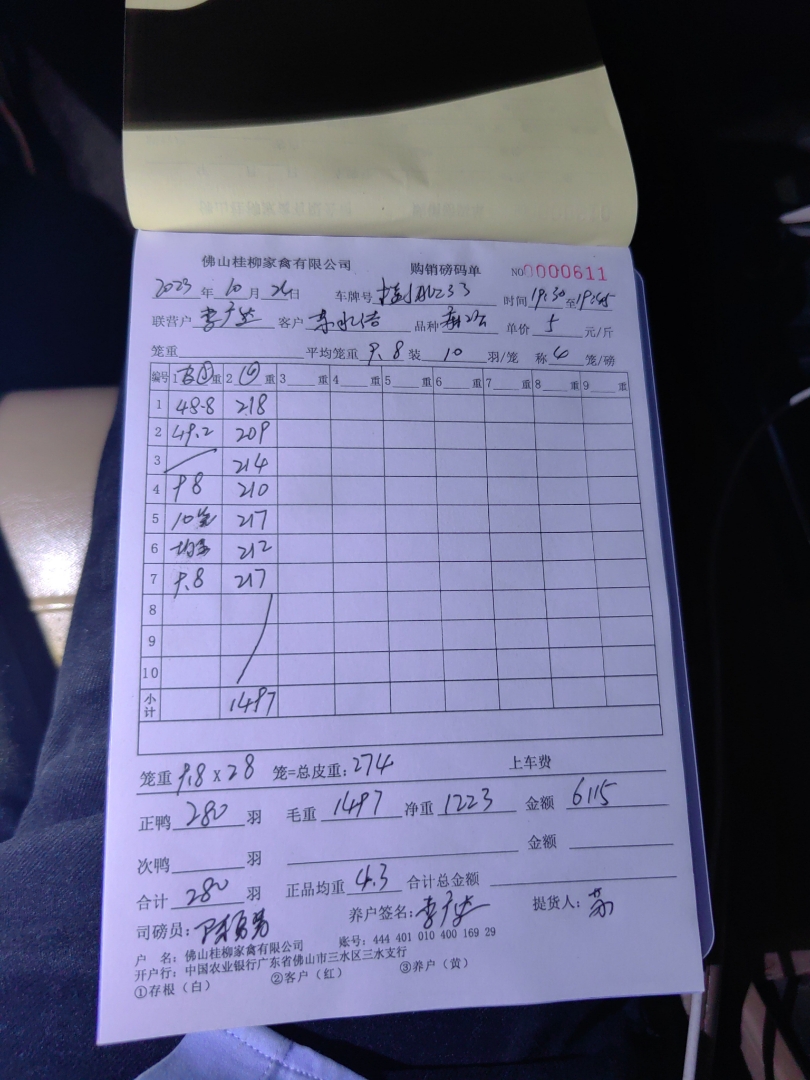 佛山桂柳家禽有限公司 购销磅码单 NO0000611
2023年10月26日 车牌号 时间19:30至19:45
联营户 客户 品种 单价5元/斤
笼重 平均笼重9.8装10羽/笼 称4笼/磅
编号 1 重 2 重 3 重 4 重 5 重 6 重 7 重 8 重 9 重
1 48.8 218
2 49.2 209
3 214
4 98 210
5 10笼 217
6 均重 212
7 9.8 217
8
9
10
小计 1497
笼重9.8×28 笼=总皮重:274 上车费
正鸭280羽 毛重1497净重1223 金额6115
次鸭 羽 金额
合计280羽 正品均重4.3合计总金额
司磅员: 养户签名: 提货人:
户 名:佛山桂柳家禽有限公司 账号:444 401 010 400 169 29
开户行:中国农业银行广东省佛山市三水区三水支行
①存根(白) ②客户(红) ③养户(黄)